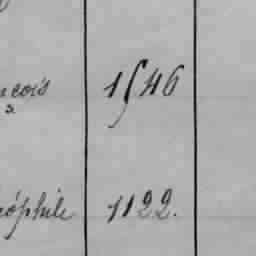 ncois 1546
éophile 1122.